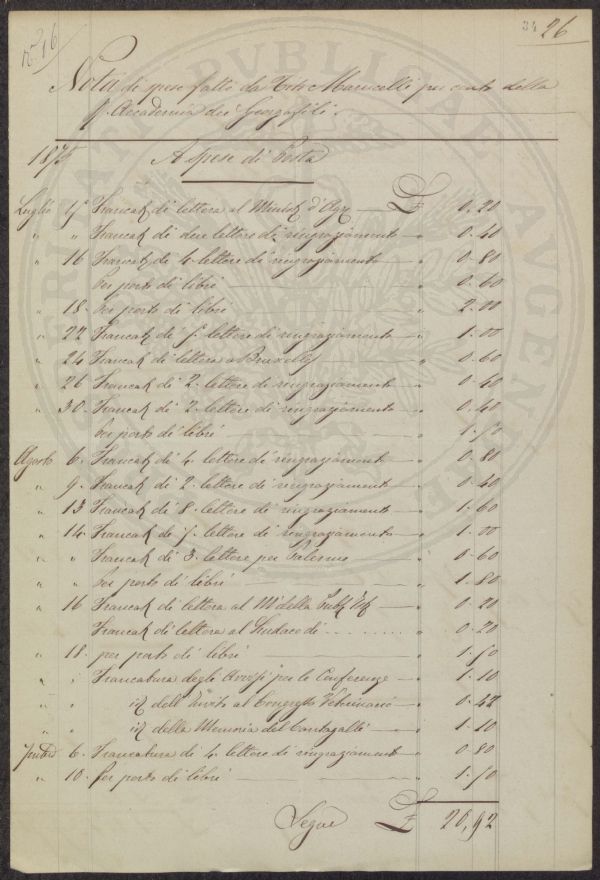 N.° 16
34 26
Nota di spese fatte da Marucelli per conto della
R. Accademia dei Georgofili.
1875 A spese di Posta
Luglio 15 Francat. di lettera al Minist. d'Agr. £ 0.20
" " Francat. di due lettere di ringraziamento " 0.40
" 16 Francat. di 4 lettere di ringraziamento " 0.80
Per porto di libri " 0.60
" 18. Per porto di libri " 2.00
" 22 Francat. di 5. lettere di ringraziamento " 1.00
" 24 Francat. di lettera a Bruxelles " 0.60
" 26 Francat. di 2. lettere di ringraziamento " 0.40
" 30. Francat. di 2. lettere di ringraziamento " 0.40
Per porto di libri " 1.50
Agosto 6. Francat. di 4. lettere di ringraziamento " 0.80
" 9. Francat. di 2. lettere di ringraziamento " 0.40
" 13 Francat. di 8. lettere di ringraziamento " 1.60
" 14. Francat. di 5. lettere di ringraziamento " 1.00
" " Francat. di 3. lettere per Palermo " 0.60
" " Per porto di libri " 1.80
" 16 Francat. di lettera al M° della Pubb. " 0.20
Francat. di lettera al Sindaco di ........ " 0.20
" 18. per porto di libri " 1.50
" " Francatura degli Avvisi per le Conferenze " 1.10
" " id. dell'Invito al Congresso Veterinario " 0.42
" " id. della Memoria del Cantagalli " 1.10
6. Francatura di 4 lettere di ringraziamento " 0.80
" 10. Per porto di libri " 1.50
Segue £ 20,92
REI PUBLICAE AUGENDAE